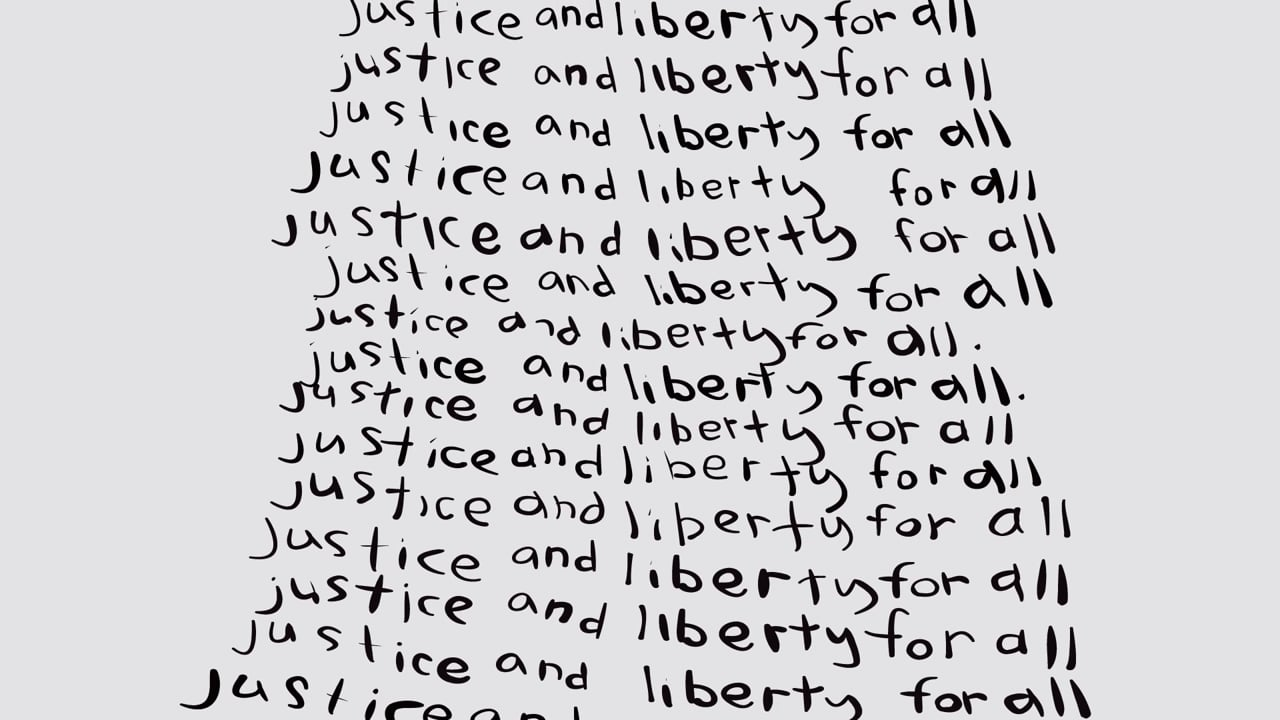 justice and liberty for all
justice and liberty for all
justice and liberty for all
justice and liberty for all
justice and liberty for all
justice and liberty for all
justice and liberty for all.
justice and liberty for all.
justice and liberty for all
justice and liberty for all
justice and liberty for all
justice and liberty for all
justice and liberty for all
justice and liberty for all
justice and